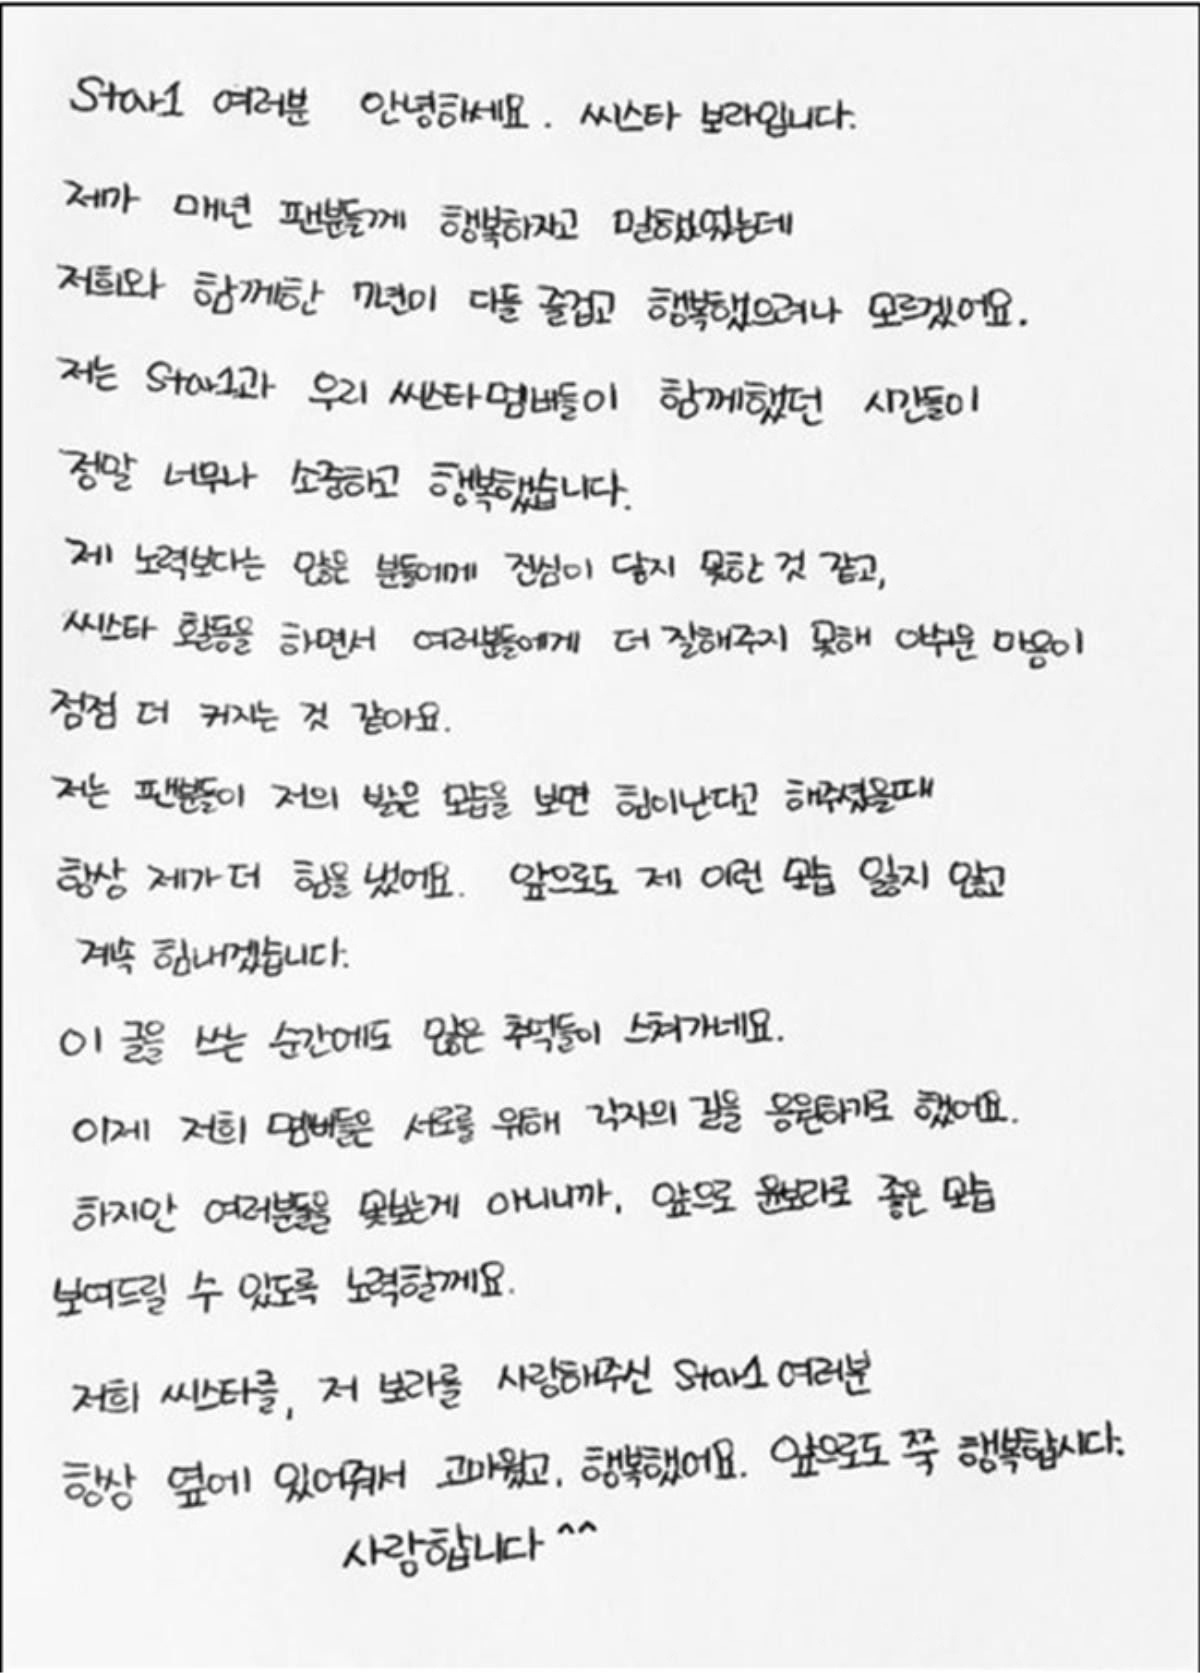 Star1 여러분 안녕하세요. 씨스타 보라입니다.
제가 매년 팬분들께 행복하자고 말했었는데
저희와 함께한 7년이 다들 즐겁고 행복했으려나 모르겠어요.
저는 Star1과 우리 씨스타멤버들이 함께했던 시간들이
정말 너무나 소중하고 행복했습니다.
제 노력보다는 많은 분들에게 진심이 닿지 못한 것 같고,
씨스타 활동을 하면서 여러분들에게 더 잘해주지 못해 아쉬운 마음이
점점 더 커지는 것 같아요.
저는 팬분들이 저의 밝은 모습을 보면 힘이난다고 해주셨을때
항상 제가 더 힘을 냈어요. 앞으로도 제 이런 모습 잃지 않고
계속 힘내겠습니다.
이 글을 쓰는 순간에도 많은 추억들이 스쳐가네요.
이제 저희 멤버들은 서로를 위해 각자의 길을 응원하기로 했어요.
하지만 여러분들을 못보는게 아니니까, 앞으로 윤보라로 좋은 모습
보여드릴 수 있도록 노력할께요.
저희 씨스타를, 저 보라를 사랑해주신 Star1 여러분
항상 옆에 있어줘서 고마웠고, 행복했어요. 앞으로도 쭉 행복합시다.
사랑합니다 ^^